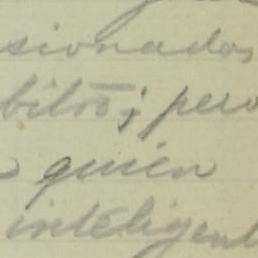 sionados
bitos; pero
quien
inteligent